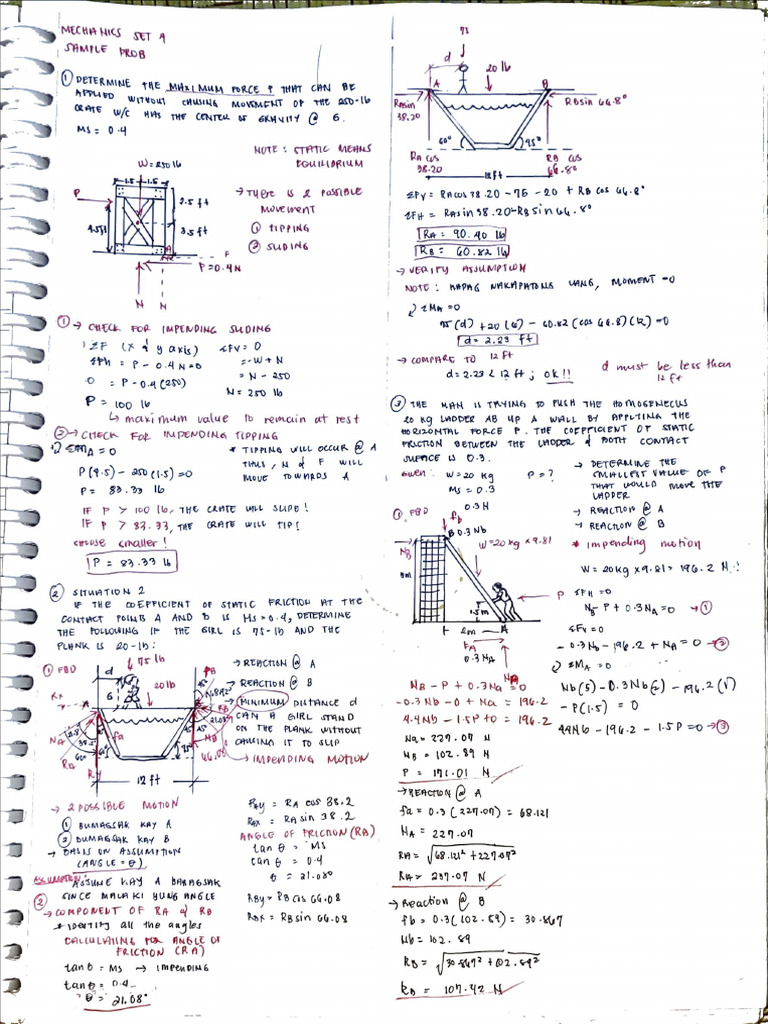 MECHANICS SET A
SAMPLE PROB
① DETERMINE THE MAXIMUM FORCE P THAT CAN BE
APPLIED WITHOUT CAUSING MOVEMENT OF THE 250-lb
CRATE W/C HAS THE CENTER OF GRAVITY @ G.
MS = 0.4
NOTE : STATIC MEANS
EQUILIBRIUM
W=250 lb
1.5 1.5
P
2.5 ft
4.5ft
3.5 ft
A
F
F=0.4N
N N
→ THERE IS 2 POSSIBLE
MOVEMENT
① TIPPING
② SLIDING
① → CHECK FOR IMPENDING SLIDING
ΣF (X & Y AXIS) ΣFV = 0
ΣFH = P - 0.4N = 0 = -W + N
0 = P - 0.4 (250) = N - 250
P = 100 lb N = 250 lb
↳ maximum value to remain at rest
② → CHECK FOR IMPENDING TIPPING
ΣMA = 0
P(4.5) - 250 (1.5) = 0
P = 83.33 lb
* TIPPING WILL OCCUR @ A
THUS, N & F WILL
MOVE TOWARDS A
IF P > 100 lb, THE CRATE WILL SLIDE!
IF P > 83.33, THE CRATE WILL TIP!
CHOOSE SMALLER!
P = 83.33 lb
② SITUATION 2
IF THE COEFFICIENT OF STATIC FRICTION AT THE
CONTACT POINTS A AND B IS MS=0.4, DETERMINE
THE FOLLOWING IF THE GIRL IS 75-lb AND THE
PLANK IS 20-lb:
① FBD
d
75 lb
20lb
G
12 ft
→ REACTION @ A
→ REACTION @ B
→ MINIMUM DISTANCE d
CAN A GIRL STAND
ON THE PLANK WITHOUT
CAUSING IT TO SLIP
→ IMPENDING MOTION
→ 2 POSSIBLE MOTION
① BUMAGSAK KAY A
② BUMAGSAK KAY B
→ BASIS ON ASSUMPTION
(ANGLE = θ)
ASSUMPTION: ASSUME KAY A BABAGSAK
SINCE MALAKI YUNG ANGLE
② → COMPONENT OF RA & RB
* IDENTIFY ALL THE ANGLES
CALCULATING FOR ANGLE OF
FRICTION (RA)
tan θ = MS → IMPENDING
tan θ = 0.4
θ = 21.08°
RAY = RA cos 38.2
RAX = RA sin 38.2
ANGLE OF FRICTION (RB)
tan θ = MS
tan θ = 0.4
θ = 21.08°
RBY = RB cos 66.08
RBX = RB sin 66.08
75
d
20 lb
A B
RA sin
38.20
RB sin 66.8°
60° 45°
RA cos
38.20
RB cos
66.8°
12ft
ΣFV = RA cos 38.20 - 75 - 20 + RB cos 66.8°
ΣFH = RA sin 38.20 - RB sin 66.8°
RA = 90.40 lb
RB = 60.82 lb
→ VERIFY ASSUMPTION
NOTE : KAPAG NAKAPATONG LANG, MOMENT = 0
ΣMA = 0
75 (d) + 20 (6) - 60.82 (cos 66.8) (12) = 0
d = 2.23 ft
→ COMPARE TO 12 ft
d = 2.23 < 12 ft ; OK!!
d must be less than
12 ft
③ THE MAN IS TRYING TO PUSH THE HOMOGENEOUS
20 kg LADDER AB UP A WALL BY APPLYING THE
HORIZONTAL FORCE P. THE COEFFICIENT OF STATIC
FRICTION BETWEEN THE LADDER & BOTH CONTACT
SURFACE IS 0.3.
Given: W = 20 kg P = ?
MS = 0.3
→ DETERMINE THE
SMALLEST VALUE OF P
THAT WOULD MOVE THE
LADDER
→ REACTION @ A
→ REACTION @ B
* impending motion
① FBD
0.3N
fb
B 0.3 Nb
NB
W=20 kg x 9.81
5m
1.5m
P
2m
A
FA
0.3 NA
NA
W = 20kg x 9.81 = 196.2 N
ΣFH = 0
NB - P + 0.3NA = 0 → ①
ΣFV = 0
- 0.3Nb - 196.2 + NA = 0 → ②
ΣMA = 0
Nb(5) - 0.3Nb(2) - 196.2 (1)
- P(1.5) = 0
4.4Nb - 196.2 - 1.5P = 0 → ③
NB - P + 0.3Na = 0
-0.3Nb - 0 + Na = 196.2
4.4Nb - 1.5P + 0 = 196.2
Na = 227.07 N
NB = 102.89 N
P = 171.01 N
→ REACTION @ A
fa = 0.3 (227.07) = 68.121
NA = 227.07
RA = √68.121² + 227.07²
RA = 237.07 N
→ Reaction @ B
fb = 0.3 (102.89) = 30.867
Nb = 102.89
RB = √30.867² + 102.89²
RB = 107.42 N